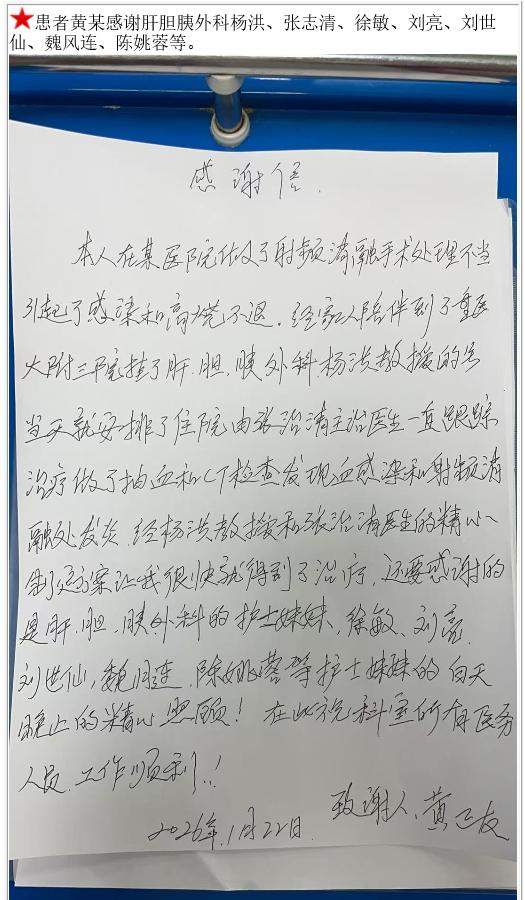 ★患者黄某感谢肝胆胰外科杨洪、张志清、徐敏、刘亮、刘世
仙、魏风连、陈姚蓉等。
感谢信.
本人在某医院做了射频消融手术处理不当
引起了感染和高烧不退.经家人陪伴到了重医
大附三院挂了肝.胆.胰外科杨洪教授的号
当天就安排了住院由张治清主治医生一直跟踪
治疗做了抽血和CT检查发现血感染和射频消
融处发炎.经杨洪教授和张治清医生的精心
制定方案让我很快就得到了治疗.还要感谢的
是肝.胆.胰外科的护士妹妹,徐敏、刘亮.
刘世仙,魏风连.陈姚蓉等护士妹妹的白天
晚上的精心照顾!在此祝科室所有医务
人员.工作顺利!!
致谢人、黄 友
2026年.1月22日.